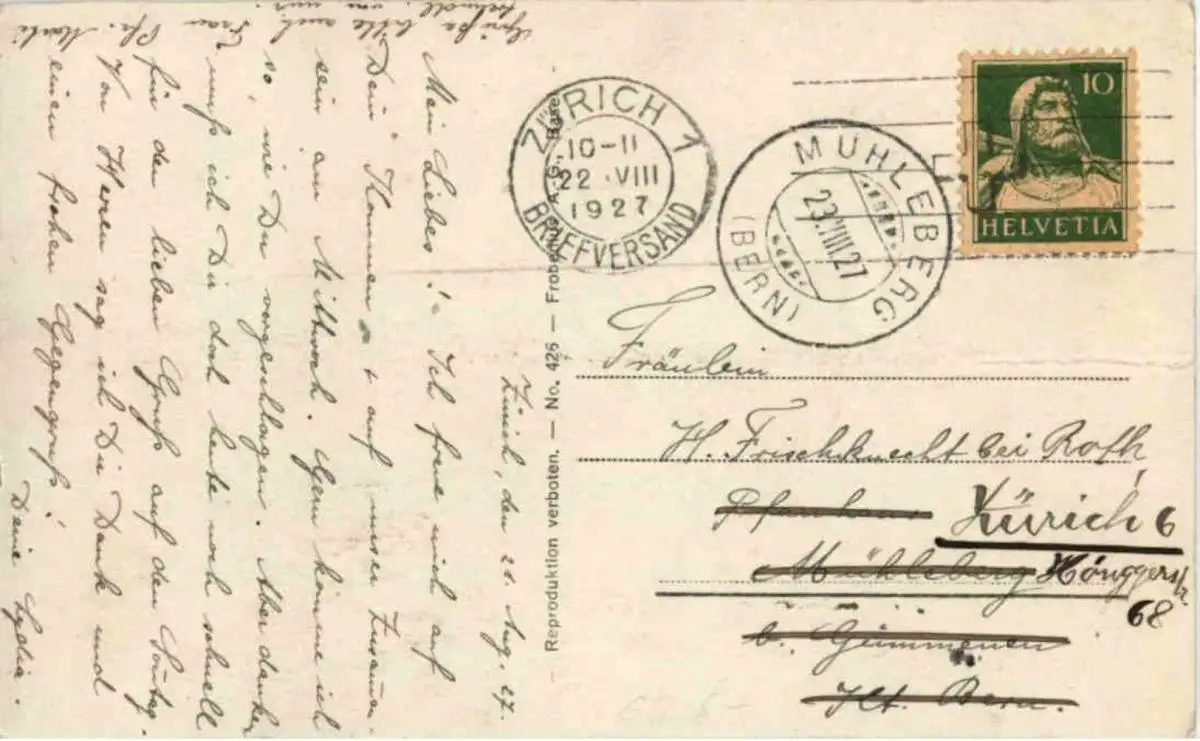 Zürich, den 21. Aug. 27.
Mein Liebes! Ich freue mich auf
Dein Kommen + auf unser Zusammen-
sein am Mittwoch. Gern komme ich
so, wie Du vorgeschlagen. Aber danken
muß ich Dir doch heute noch schnell
für den lieben Gruß auf den Sonntag.
Von Herzen sag ich Dir Dank und
einen frohen Gegengruß!
Deine Lydia.
Grüße bitte auch Frau Pfr.
von mir.
Reproduktion verboten. — No. 426 — Frobenius A. G., Basel
ZÜRICH 1
10-11
22.VIII
1927
BRIEFVERSAND
MÜHLEBERG
23.VIII.27
(BERN)
10
HELVETIA
Fräulein
H. Frischknecht bei Roth,
Pfarrhaus Zürich 6
Mühleberg Hönggerstr.
68
b. Gümmenen
Kt. Bern.